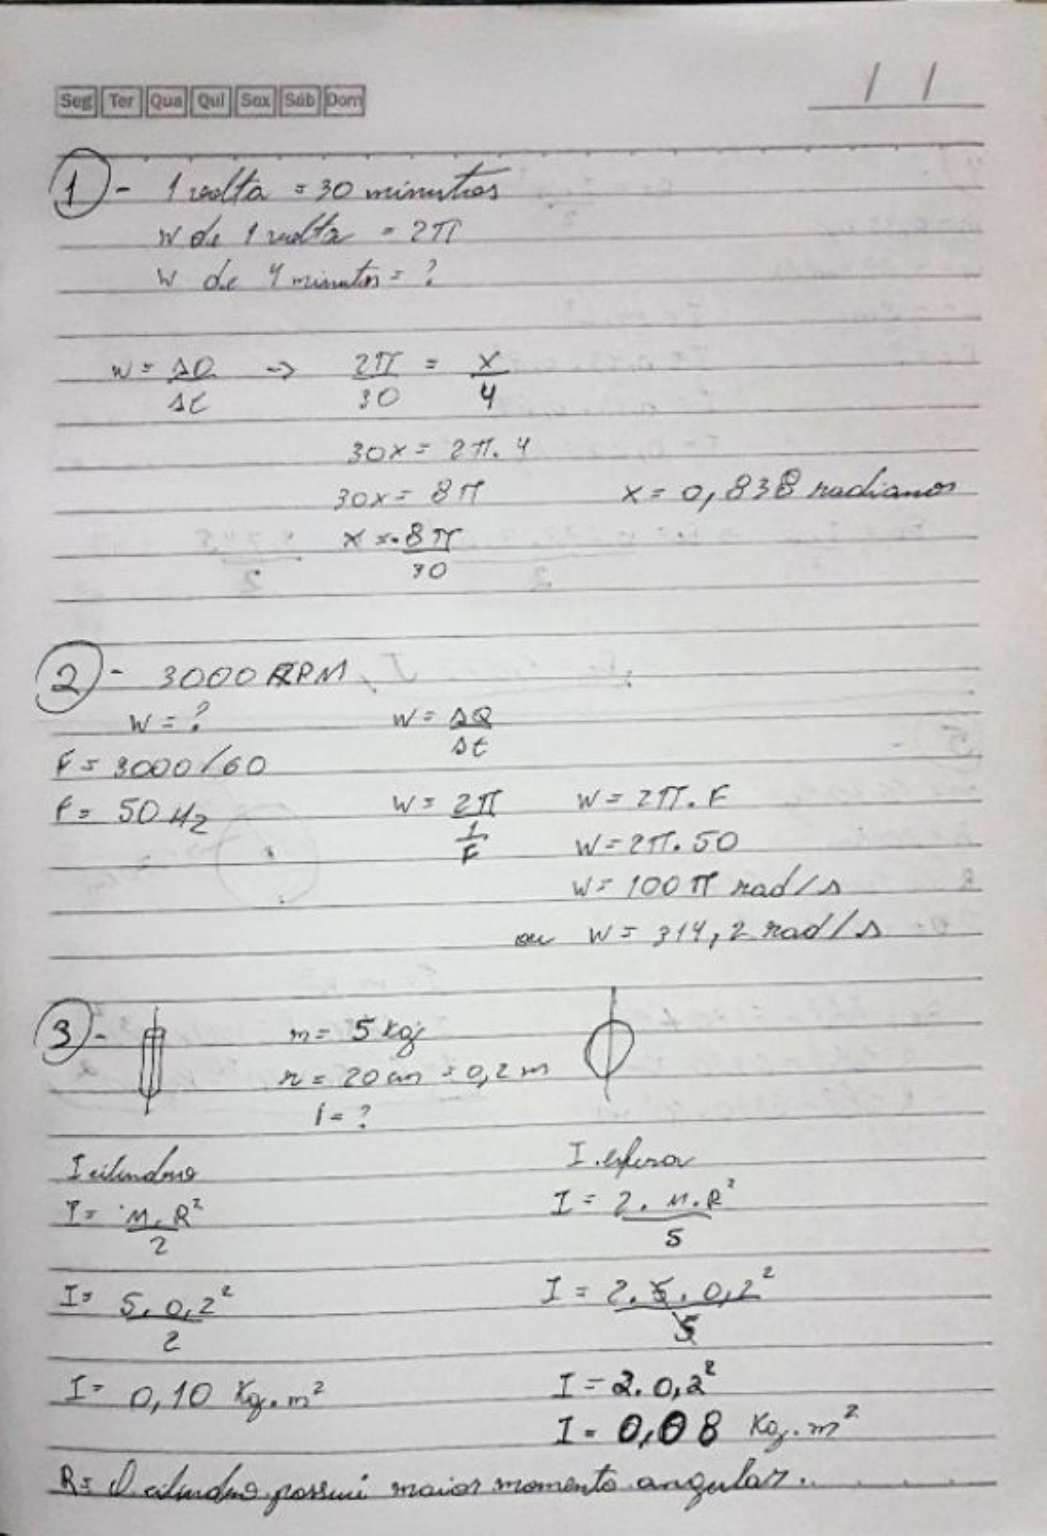 Seg Ter Qua Qui Sex Sáb Dom
/ /
1 - 1 volta = 30 minutos
W de 1 volta = 2π
W de 4 minutos = ?
W = ΔQ/Δt → 2π/30 = x/4
30x = 2π.4
30x = 8π x = 0,838 radianos
x = 8π/30
2 - 3000 RPM
W = ? W = ΔQ/Δt
F = 3000/60
F = 50 Hz W = 2π/(1/F) W = 2π.F
W = 2π.50
W = 100π rad/s
ou W = 314,2 rad/s
3 - m = 5 Kg
r = 20cm = 0,2m
I = ?
I cilindro I esfera
I = M.R²/2 I = 2.M.R²/5
I = 5.0,2²/2 I = 2.5.0,2²/5
I = 0,10 Kg.m² I = 2.0,2²
I = 0,08 Kg.m²
R = O cilindro possui maior momento angular.